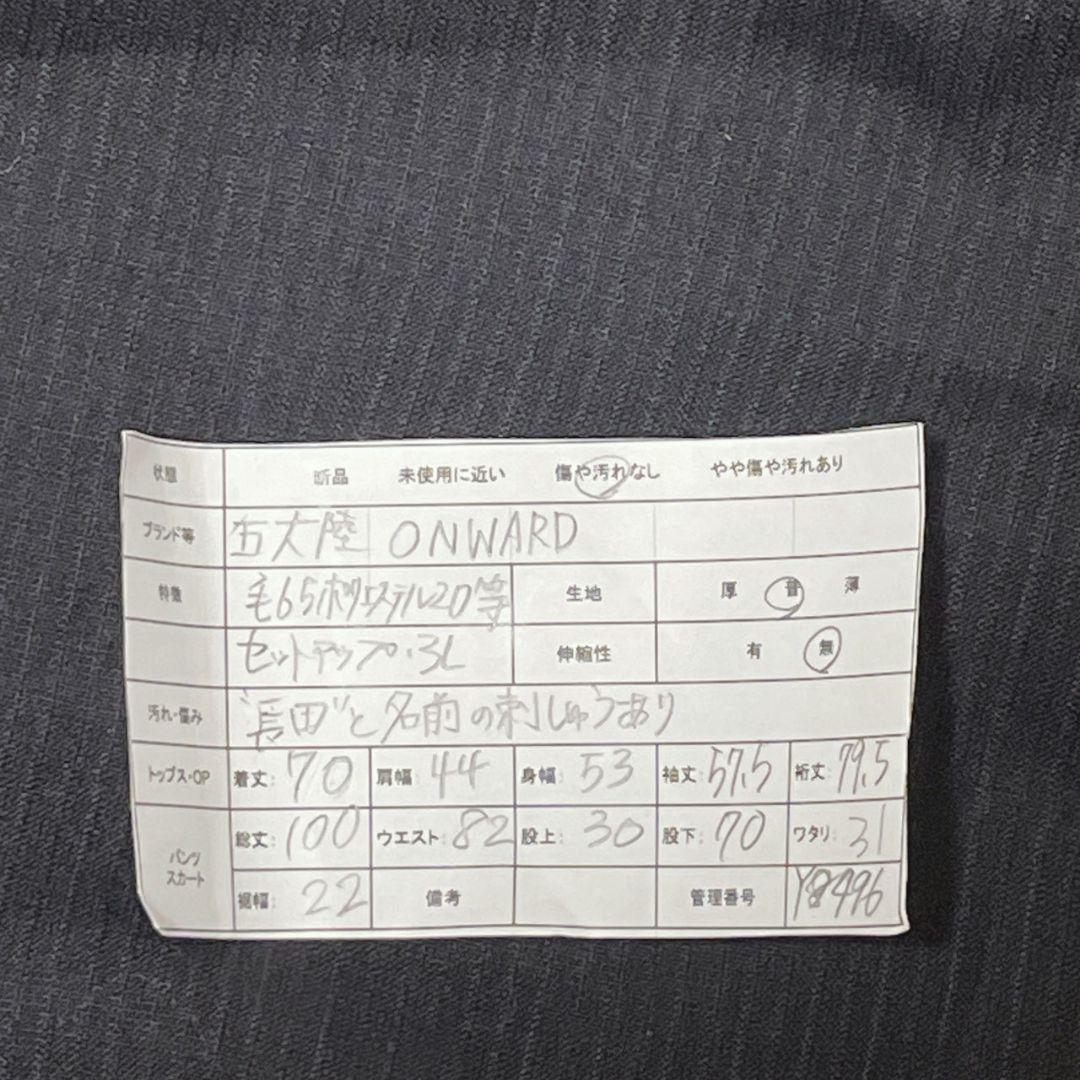 状態 新品 未使用に近い 傷や汚れなし やや傷や汚れあり
ブランド等 五大陸 ONWARD
特徴 毛65ポリエステル20等 生地 厚 普 薄
セットアップ・3L 伸縮性 有 無
汚れ・傷み "長田"と名前の刺しゅうあり
トップス・OP 着丈: 70 肩幅: 44 身幅: 53 袖丈: 57.5 裄丈: 79.5
パンツ スカート 総丈: 100 ウエスト: 82 股上: 30 股下: 70 ワタリ: 31
裾幅: 22 備考 管理番号